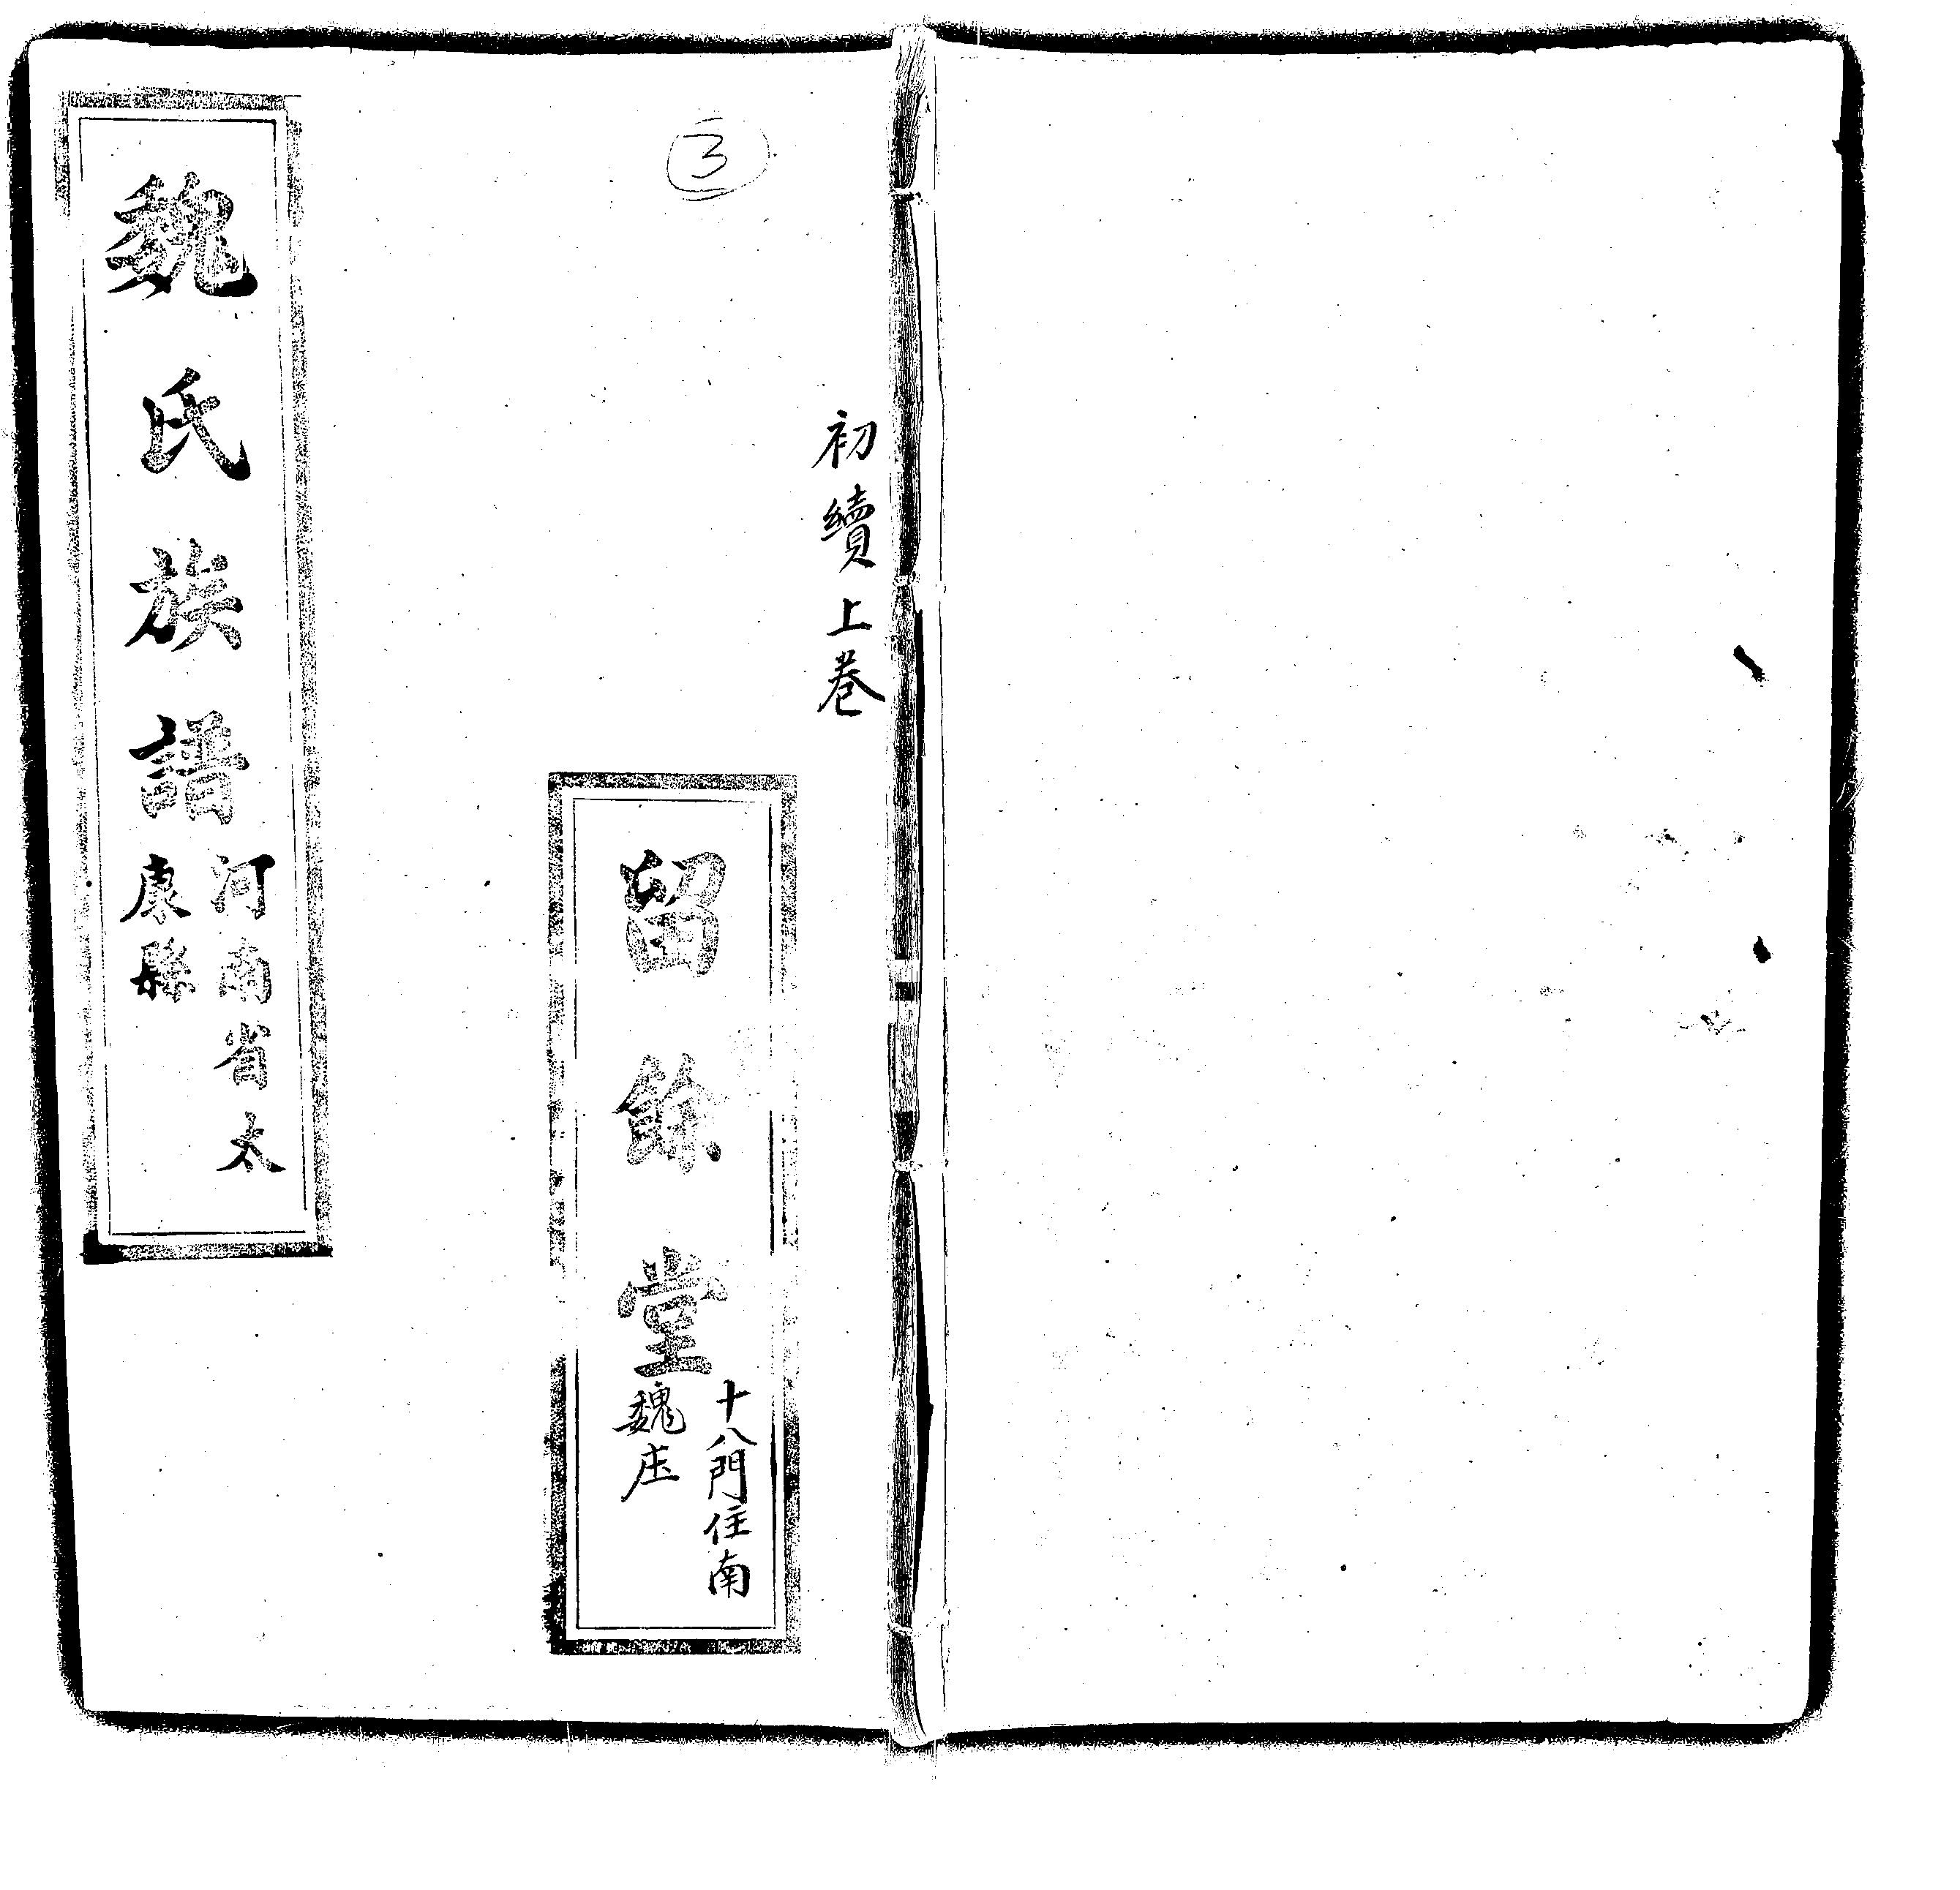 ③
初續上卷
留餘堂
十八門住南
魏庄
魏氏族譜
河南省太
康縣